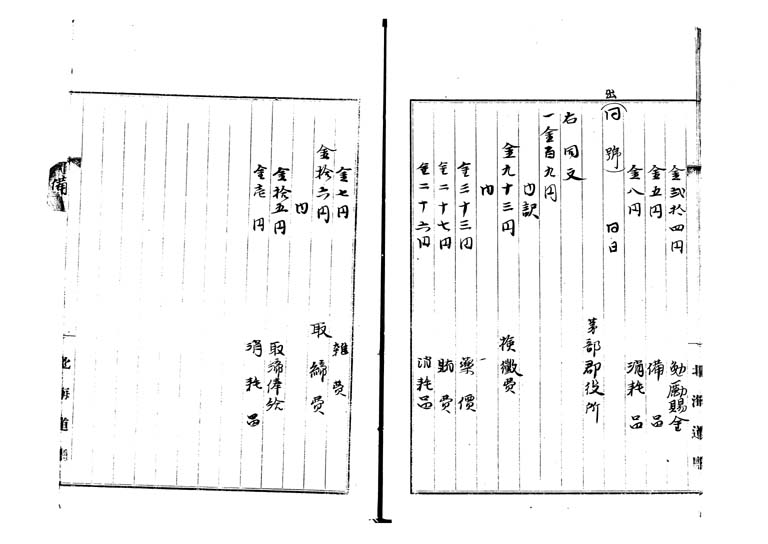 金弐拾四円 勉励賜金
金五円 備品
金八円 消耗品
出(同號) 同日
茅部郡役所
右同文
一金百九円
内訳
金九十三円 検黴費
内
金三十三円 薬價
金二十七円 賄費
金二十六円 消耗品
北海道
金七円 雑費
金拾六円 取締費
内
金拾五円 取締俸給
金壱円 消耗品
北海道
備